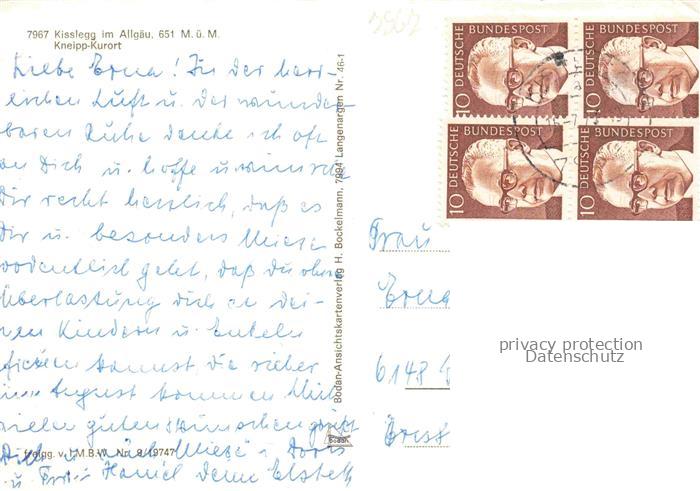 7967 Kisslegg im Allgäu, 651 M. ü. M.
Kneipp-Kurort
Liebe Erna! In der herr-
lichen Luft u. der wunder-
baren Ruhe denke ich oft
an Dich u. hoffe u. wünsche
Dir recht herzlich, daß es
Dir u. besonders Miese
ordentlich geht, daß du ohne
Überlastung dich an dei-
nen Kindern u. Enkeln
kannst, die
im August kommen. Mit
vielen guten Wünschen grüßt
Dich u. auch Miese u. Doris
u. Frau deine Elsbeth
freigg. v. I.M.B.W. Nr. 9/19747
Bodan-Ansichtskartenverlag H. Bockelmann, 7994 Langenargen Nr. 46-1
DEUTSCHE BUNDESPOST 10
DEUTSCHE BUNDESPOST 10
DEUTSCHE BUNDESPOST 10
DEUTSCHE BUNDESPOST 10
Frau
Erna
6148
privacy protection
Datenschutz